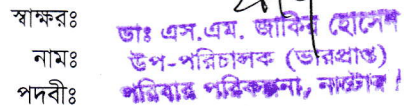 স্বাক্ষরঃ
ডাঃ এস.এম. জাকির হোসেন
নামঃ উপ-পরিচালক (ভারপ্রাপ্ত)
পদবীঃ পরিবার পরিকল্পনা, নাটোর।